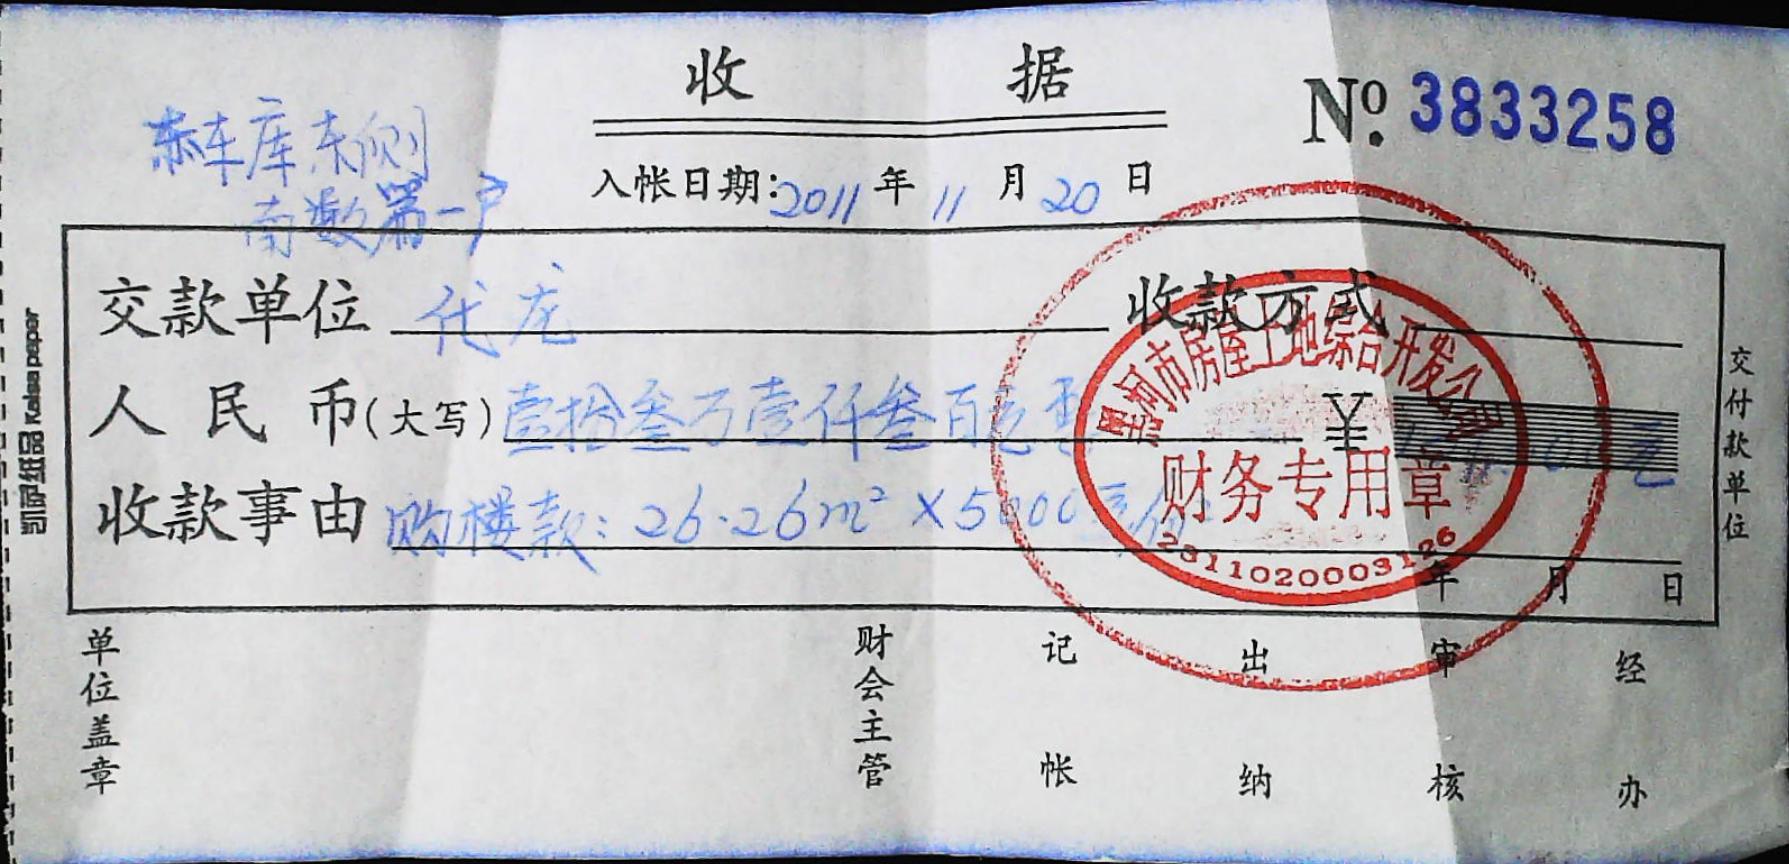 收 据
No. 3833258
车库东侧
南数第一户
入帐日期:2011年11月20日
交款单位 代龙 收款方式
人民币(大写)壹拾叁万壹仟叁百元 ¥
收款事由 购楼款:26.26m²×5000元/m²
年 月 日
黑河市房屋土地综合开发公司
财务专用章
2311020003126
交付款单位
凯丽纸品 Kalea paper
单位盖章 财会主管 记帐 出纳 审核 经办